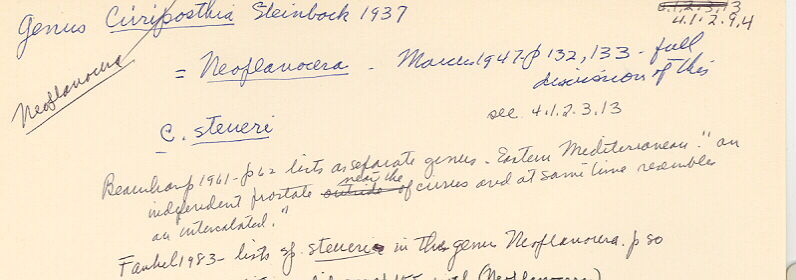 Genus Cirriposthia Steinbock 1937
6.1.2.3.13
4.1.2.9.4
Neoplanocera
= Neoplanocera - Marcus 1947-p 132, 133 - full
discussion of this
see 4.1.2.3.13
C. steueri
Beauchamp 1961-p62 lists as separate genus - Eastern Mediterranean "an
independent prostate outside near the of cirrus and at same time resembles
an intercalated."
Faubel 1983 - lists sp. steueri in the genus Neoplanocera. p 80
(Neoplanocera)